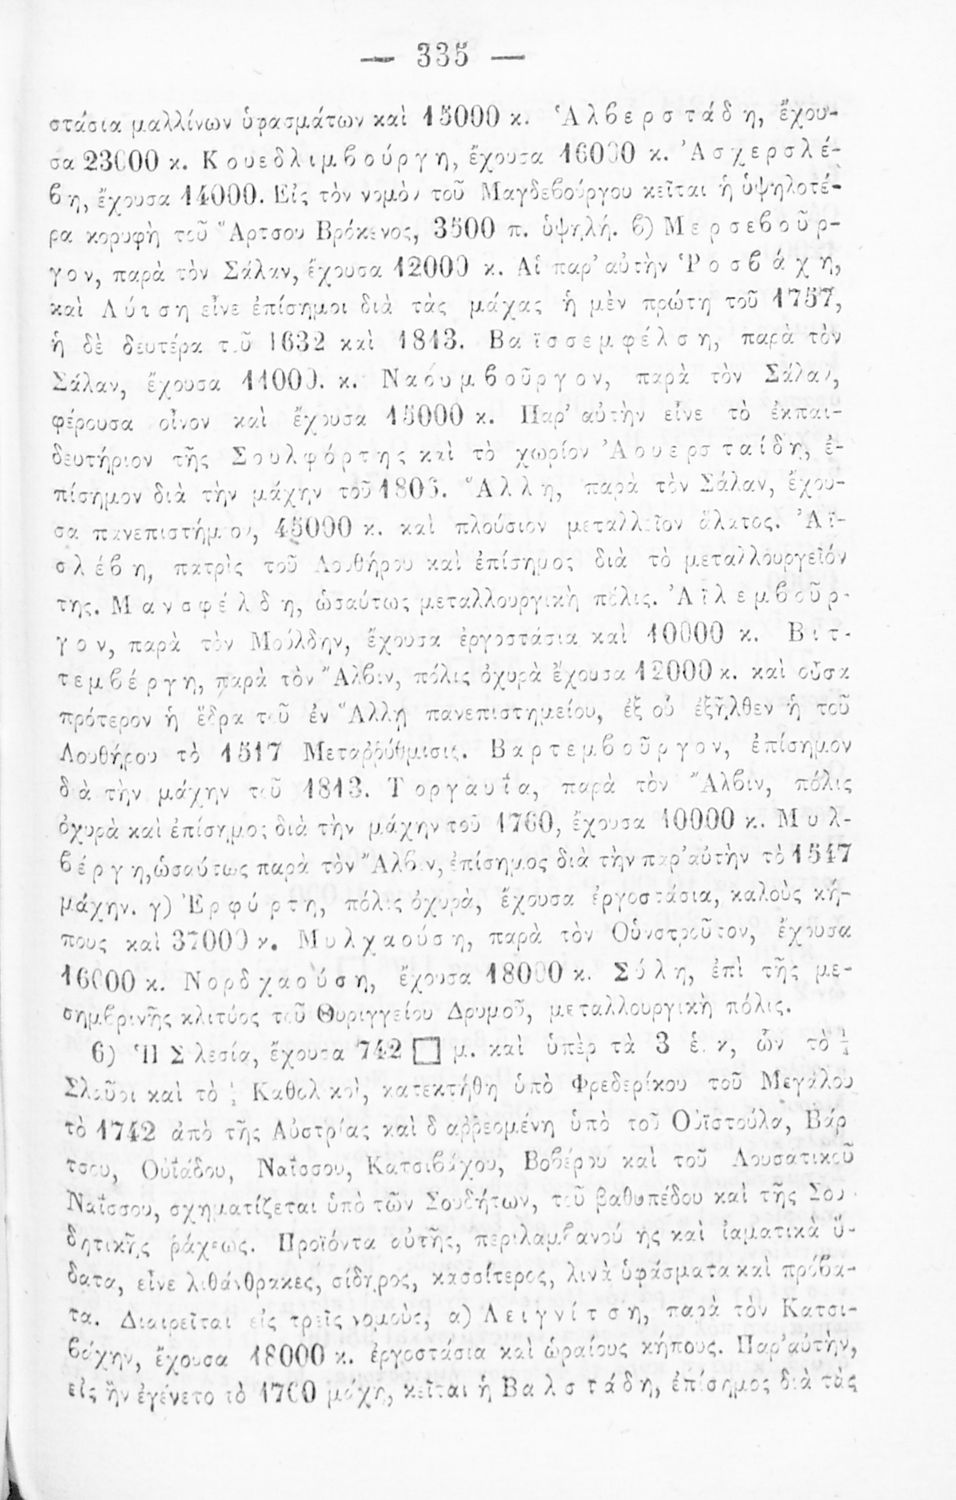 — 335 —
στάσια μαλλίνων ὑφασμάτων καὶ 15000 κ. Ἁλβερστάδη, ἔχου-
σα 23000 κ. Κουεδλιμβούργη, ἔχουσα 16000 κ. Ἀσχερσλέ-
βη, ἔχουσα 14000. Εἰς τὸν νομὸν τοῦ Μαγδεβούργου κεῖται ἡ ὑψηλοτέ-
ρα κορυφὴ τοῦ Ἄρτσου Βρόκενος, 3500 π. ὑψηλή. β) Μερσεβοῦρ-
γον, παρὰ τὸν Σάλαν, ἔχουσα 12000 κ. Αἱ παρ' αὐτὴν Ῥοσβάχη,
καὶ Λύτση εἶνε ἐπίσημοι διὰ τὰς μάχας ἡ μὲν πρώτη τοῦ 1757,
ἡ δὲ δευτέρα τοῦ 1632 καὶ 1813. Βαϊσσεμφέλση, παρὰ τὸν
Σάλαν, ἔχουσα 11000. κ. Ναουμβοῦργον, παρὰ τὸν Σάλαν,
φέρουσα οἶνον καὶ ἔχουσα 15000 κ. Παρ' αὐτὴν εἶνε τὸ ἐκπαι-
δευτήριον τῆς Σουλφόρτης καὶ τὸ χωρίον Ἀουερσταίδη, ἐ-
πίσημον διὰ τὴν μάχην τοῦ 1806. Ἅλλη, παρὰ τὸν Σάλαν, ἔχου-
σα πανεπιστήμιον, 45000 κ. καὶ πλούσιον μεταλλεῖον ἅλατος. Ἀϊ-
σλέβη, πατρὶς τοῦ Λουθήρου καὶ ἐπίσημος διὰ τὸ μεταλλουργεῖόν
της. Μανσφέλδη, ὡσαύτως μεταλλουργικὴ πόλις. Ἀϊλεμβοῦρ-
γον, παρὰ τὸν Μούλδην, ἔχουσα ἐργοστάσια καὶ 10000 κ. Βιτ-
τεμβέργη, παρὰ τὸν Ἄλβιν, πόλις ὀχυρὰ ἔχουσα 12000 κ. καὶ οὖσα
πρότερον ἡ ἕδρα τοῦ ἐν Ἅλλῃ πανεπιστημείου, ἐξ οὗ ἐξῆλθεν ἡ τοῦ
Λουθήρου τὸ 1517 Μεταρρύθμισις. Βαρτεμβοῦργον, ἐπίσημον
διὰ τὴν μάχην τοῦ 1813. Τοργαυΐα, παρὰ τὸν Ἄλβιν, πόλις
ὀχυρὰ καὶ ἐπίσημος διὰ τὴν μάχην τοῦ 1760, ἔχουσα 10000 κ. Μυλ-
βέργη, ὡσαύτως παρὰ τὸν Ἄλβιν, ἐπίσημος διὰ τὴν παρ' αὐτὴν τὸ 1547
μάχην. γ) Ἐρφύρτη, πόλις ὀχυρὰ, ἔχουσα ἐργοστάσια, καλοὺς κή-
πους καὶ 37000 κ. Μυλχαούση, παρὰ τὸν Οὐνστροῦτον, ἔχουσα
16000 κ. Νορδχαούση, ἔχουσα 18000 κ. Σύλη, ἐπὶ τῆς με-
σημβρινῆς κλιτύος τοῦ Θυριγγείου Δρυμοῦ, μεταλλουργικὴ πόλις.
6) Ἡ Σιλεσία, ἔχουσα 742 □ μ. καὶ ὑπὲρ τὰ 3 ἑ. κ, ὧν τὸ
Σλαῦοι καὶ τὸ Καθολικοὶ, κατεκτήθη ὑπὸ Φρεδερίκου τοῦ Μεγάλου
τὸ 1742 ἀπὸ τῆς Αὐστρίας καὶ διαρρεομένη ὑπὸ τοῦ Οὐϊστούλα, Βάρ
τσου, Οὐϊάδου, Ναΐσσου, Κατσιβάχου, Βοβέρου καὶ τοῦ Λουσατικοῦ
Ναΐσσου, σχηματίζεται ὑπὸ τῶν Σουδήτων, τοῦ βαθυπέδου καὶ τῆς Σου-
δητικῆς ῥάχεως. Προϊόντα αὐτῆς, περιλαμβανούσης καὶ ἰαματικὰ ὕ-
δατα, εἶνε λιθάνθρακες, σίδηρος, κασσίτερος, λινὰ ὑφάσματα καὶ πρόβα-
τα. Διαιρεῖται εἰς τρεῖς νομοὺς, α) Λειγνίτση, παρὰ τὸν Κατσι-
βάχην, ἔχουσα 18000 κ. ἐργοστάσια καὶ ὡραίους κήπους. Παρ' αὐτὴν,
εἰς ἣν ἐγένετο τὸ 1760 μάχη, κεῖται ἡ Βαλστάδη, ἐπίσημος διὰ τὰς